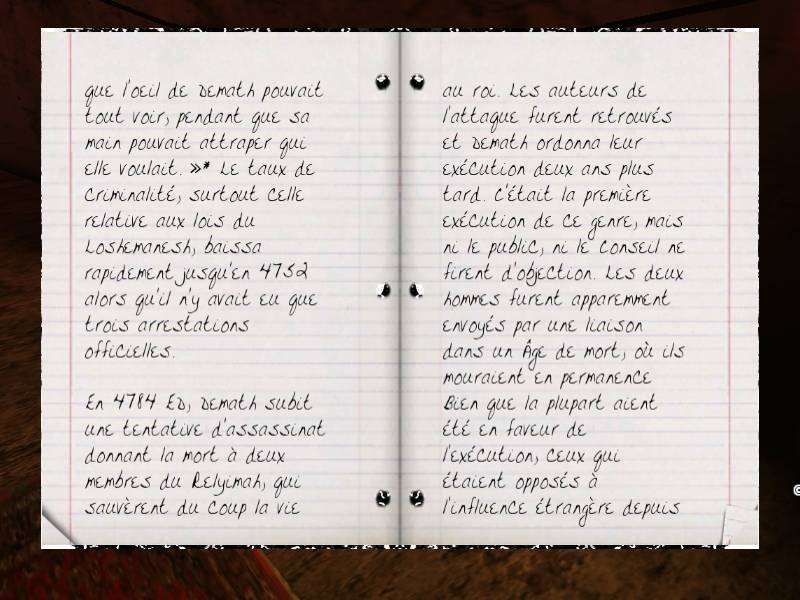 que l'oeil de Demath pouvait
tout voir, pendant que sa
main pouvait attraper qui
elle voulait. »* Le taux de
criminalité, surtout celle
relative aux lois du
Loshemanesh, baissa
rapidement jusqu'en 4752
alors qu'il n'y avait eu que
trois arrestations
officielles.
En 4784 ED, Demath subit
une tentative d'assassinat
donnant la mort à deux
membres du Relyimah, qui
sauvèrent du coup la vie
au roi. Les auteurs de
l'attaque furent retrouvés
et Demath ordonna leur
exécution deux ans plus
tard. C'était la première
exécution de ce genre, mais
ni le public, ni le conseil ne
firent d'objection. Les deux
hommes furent apparemment
envoyés par une liaison
dans un Âge de mort, où ils
mouraient en permanence
Bien que la plupart aient
été en faveur de
l'exécution, ceux qui
étaient opposés à
l'influence étrangère depuis
©